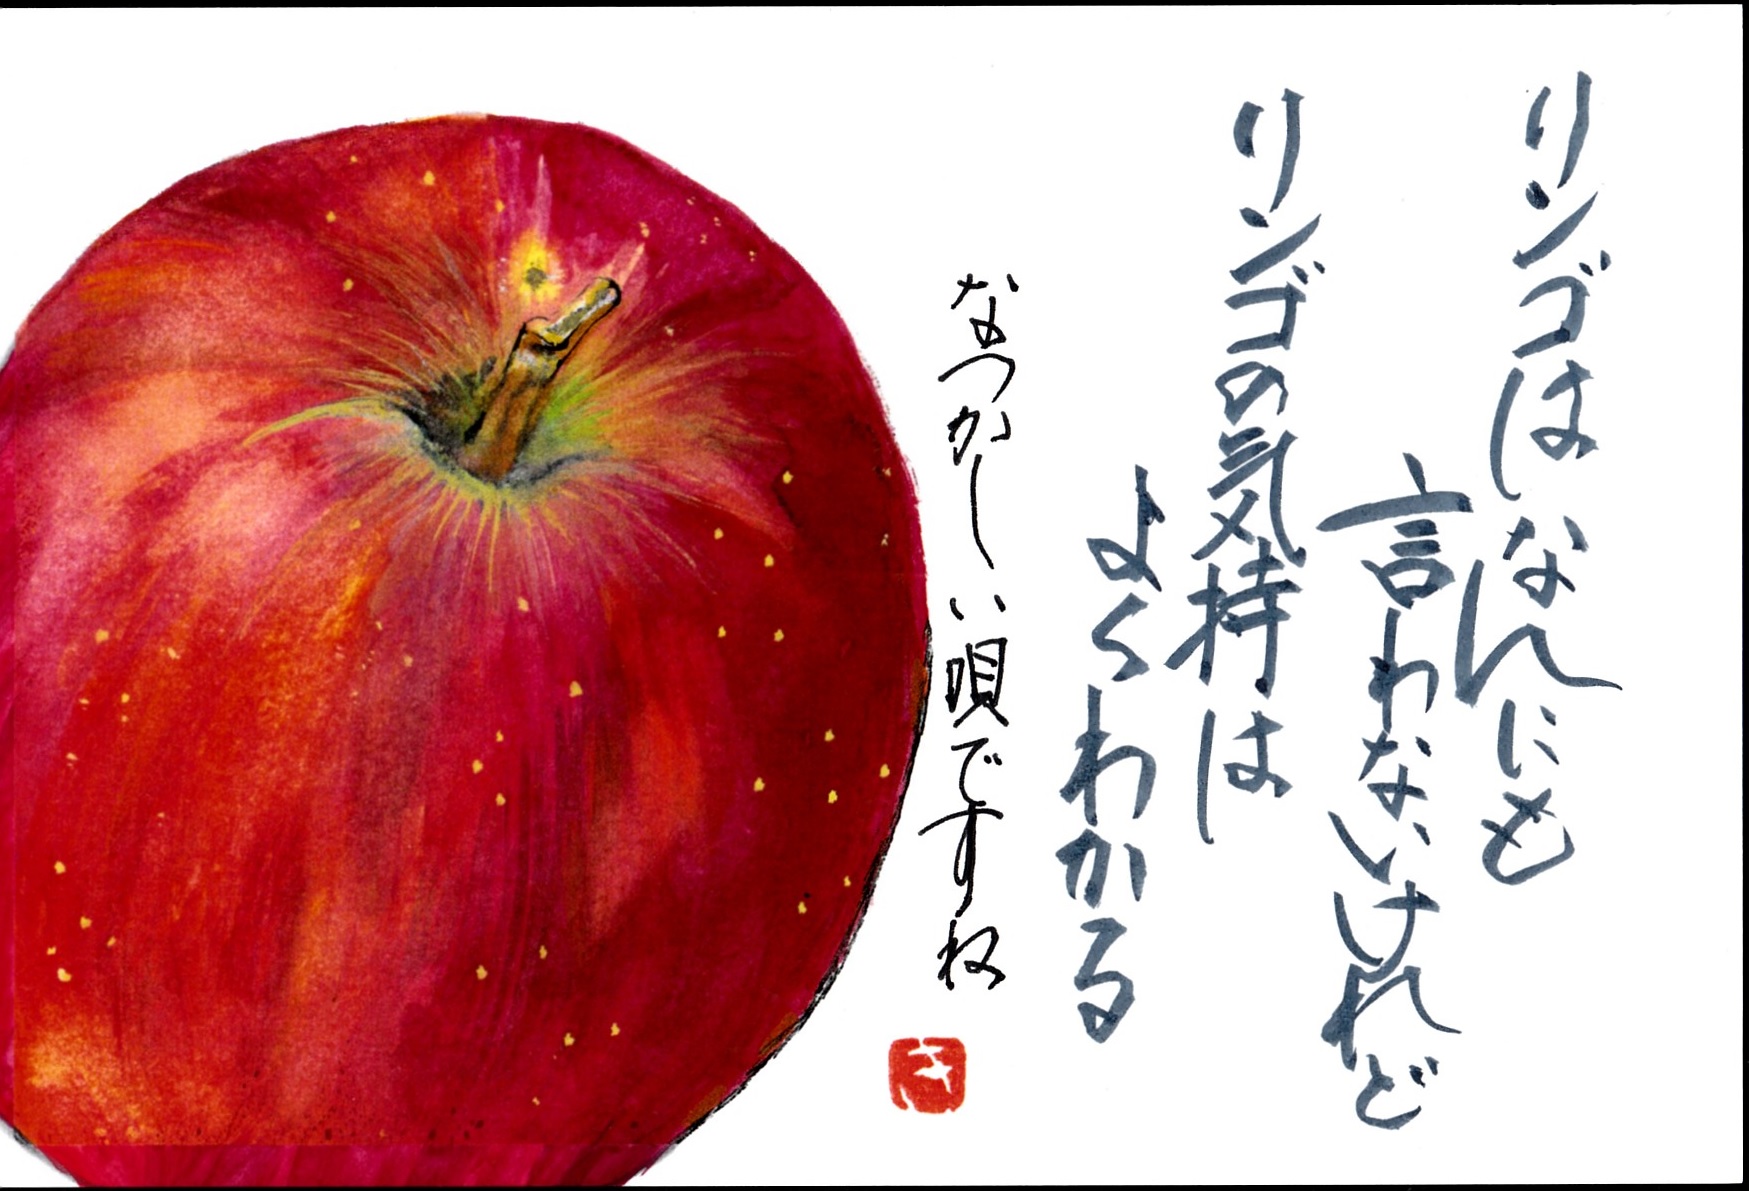 リンゴはなんにも
言わないけれど
リンゴの気持は
よくわかる
なつかしい唄ですね